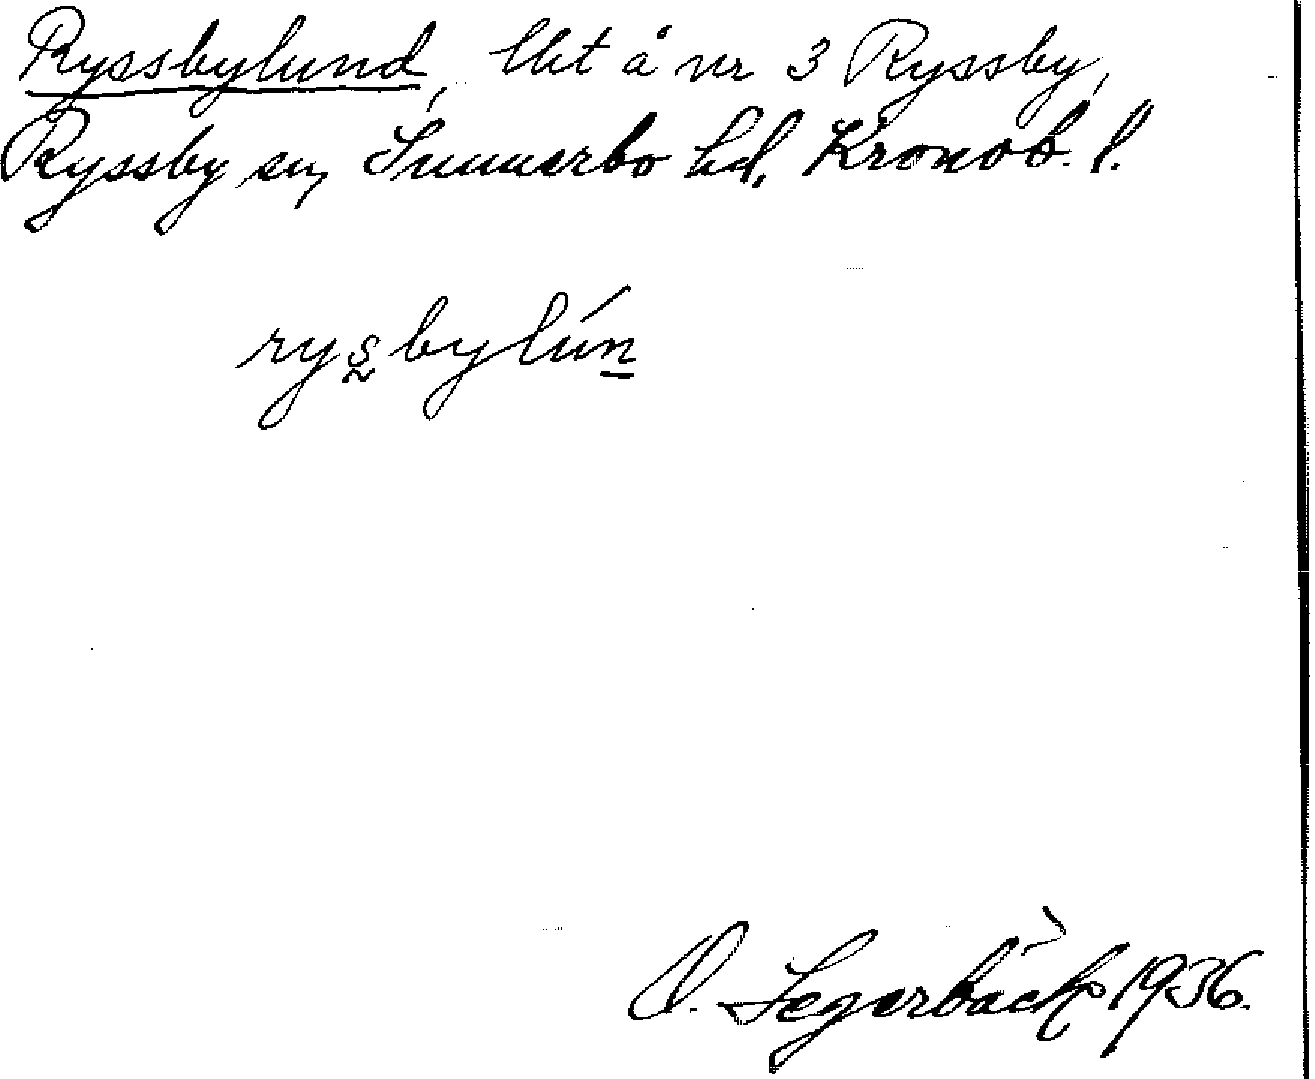 Ryssbylund, lht å nr 3 Ryssby,
Ryssby sn, Sunnerbo hd, Kronob. l.
rysbylún
O. Segerbäck 1936.